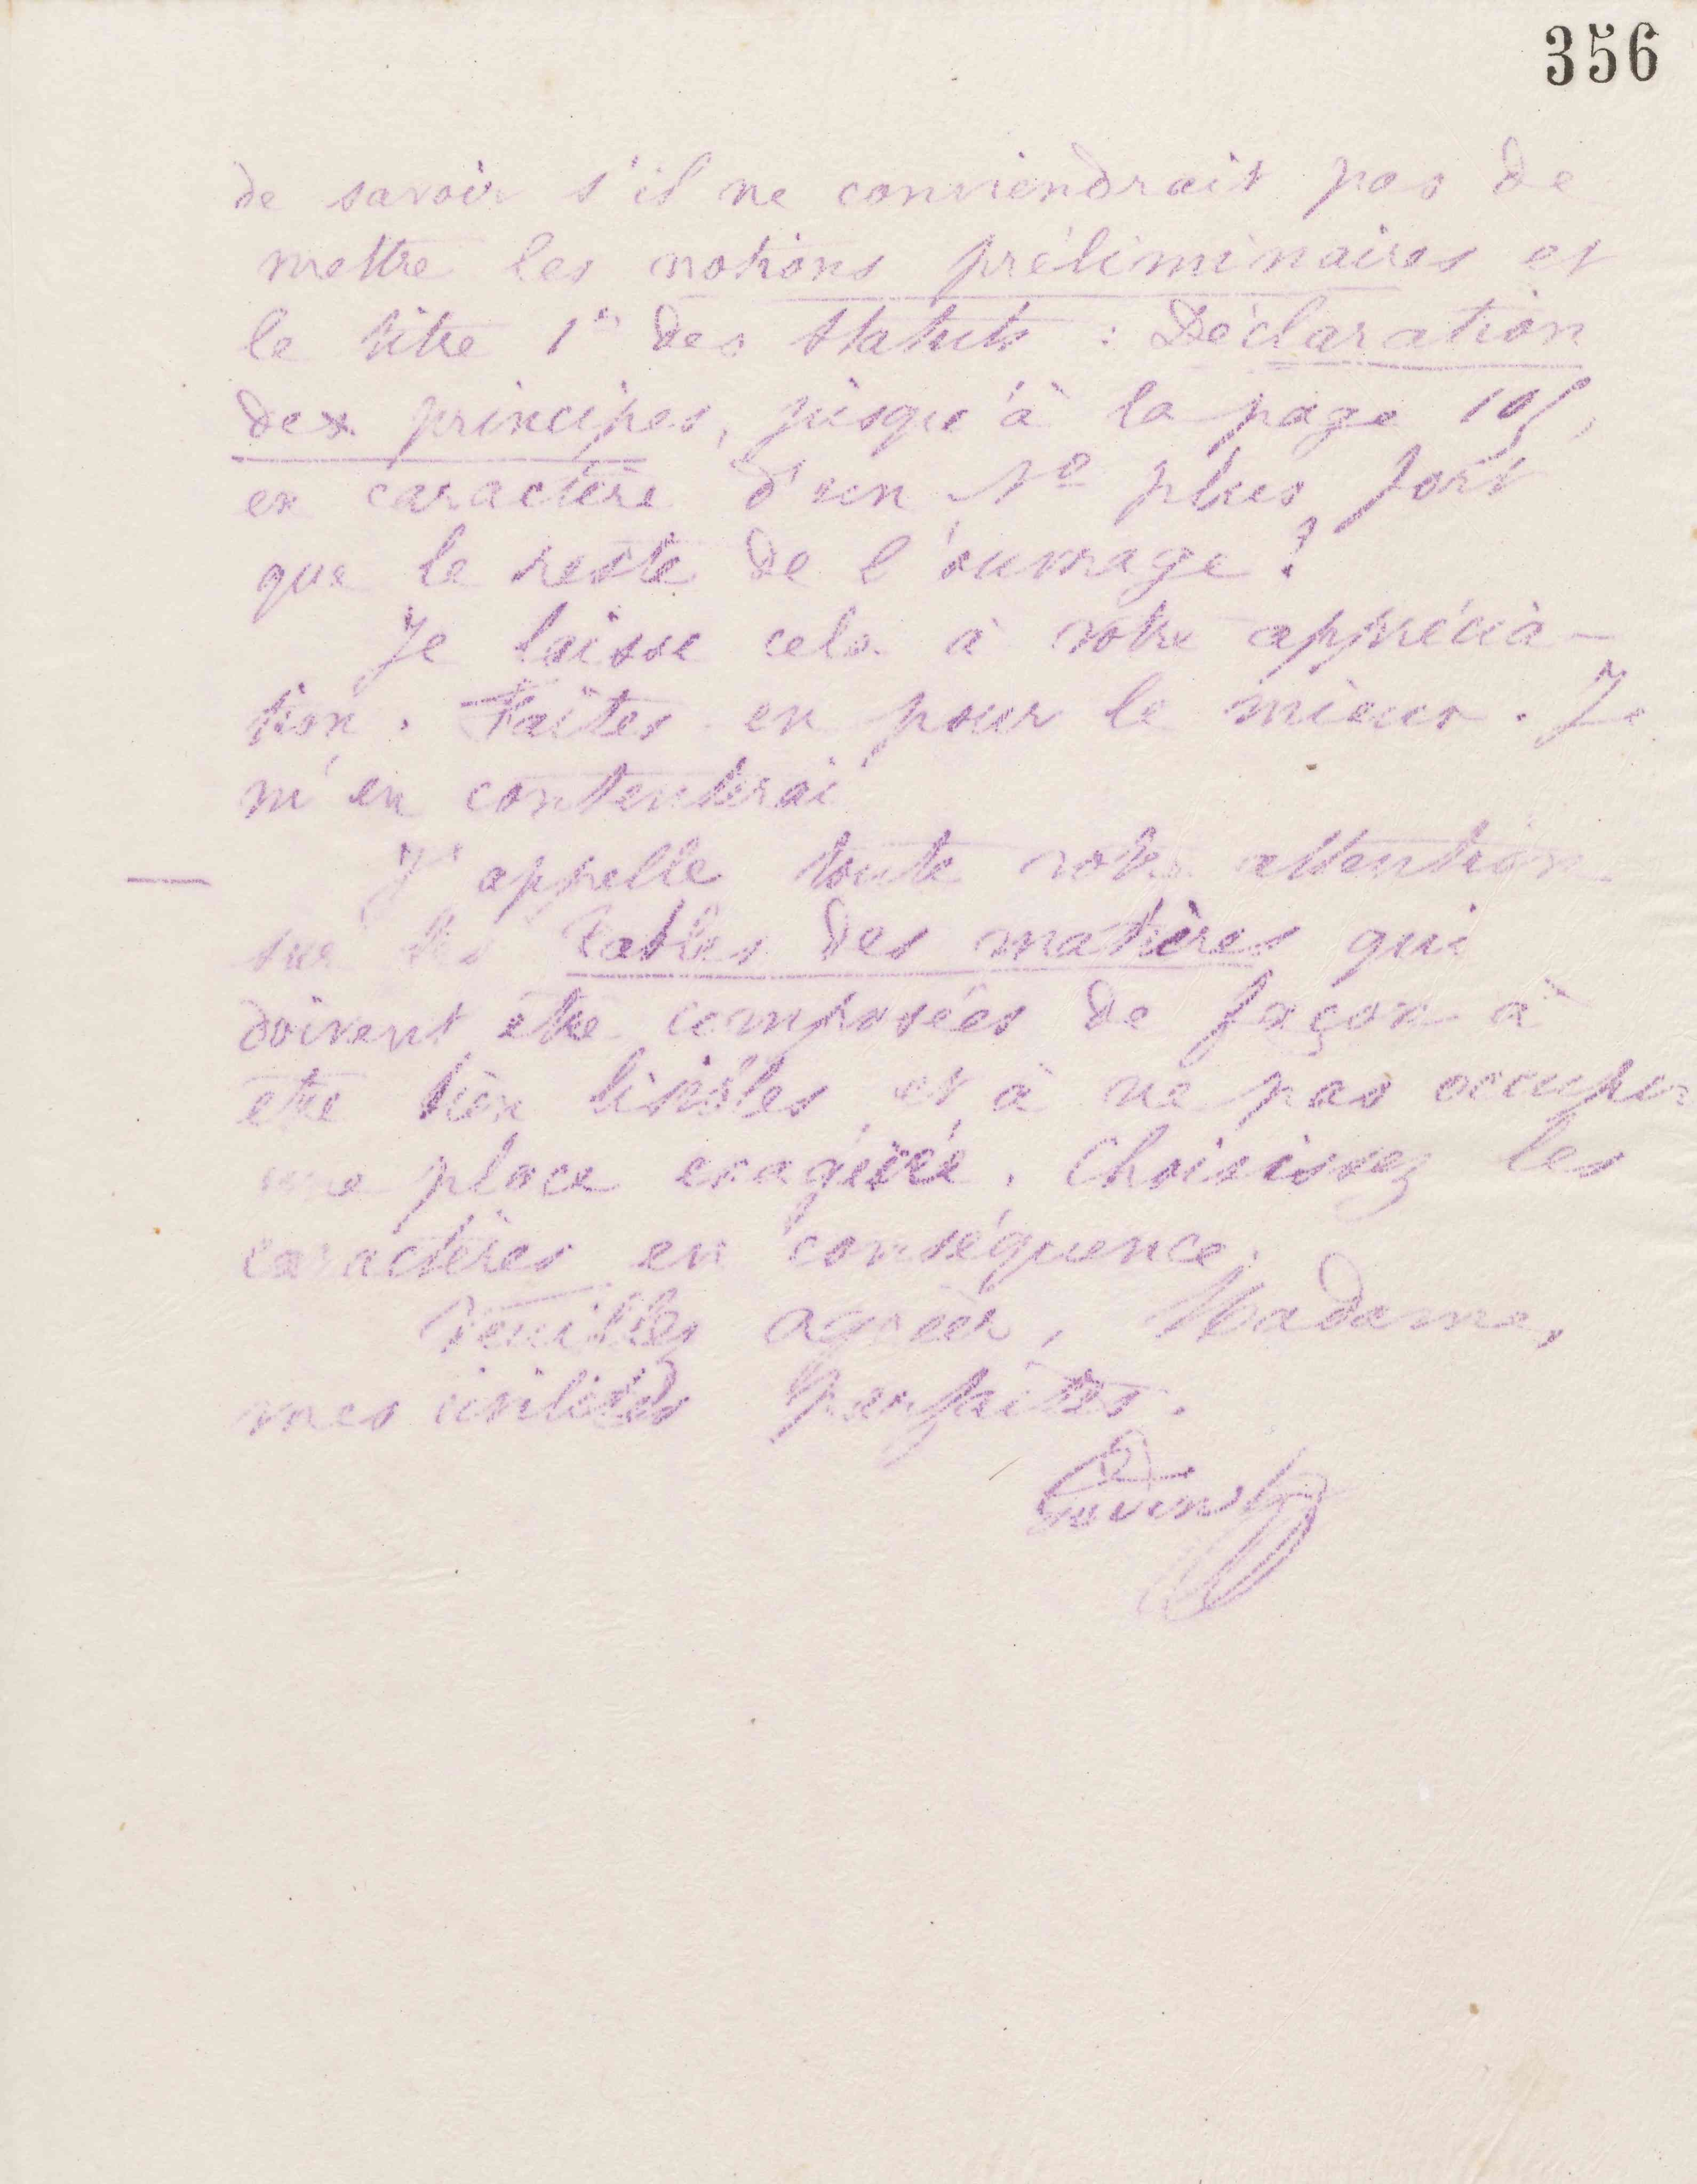 356
de savoir s'il ne conviendrait pas de
mettre les notions préliminaires et
le titre 1er des statuts : Déclaration
des principes, jusqu'à la page 105,
en caractère d'un No plus fort
que le reste de l'ouvrage ?
Je laisse cela à votre apprécia-
tion. Faites en pour le mieux. Je
m'en contenterai
— J'appelle toute votre attention
sur les Tables des matières qui
doivent être composées de façon à
etre bien lisibles et à ne pas occuper
une place exagérée. Choisissez les
caractères en conséquence.
Veuillez agréer, Madame,
mes civilités parfaites.
Godin